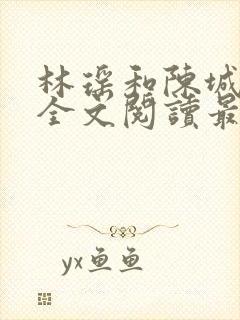 林瑶和陳城
全文閱讀最
yx鱼鱼